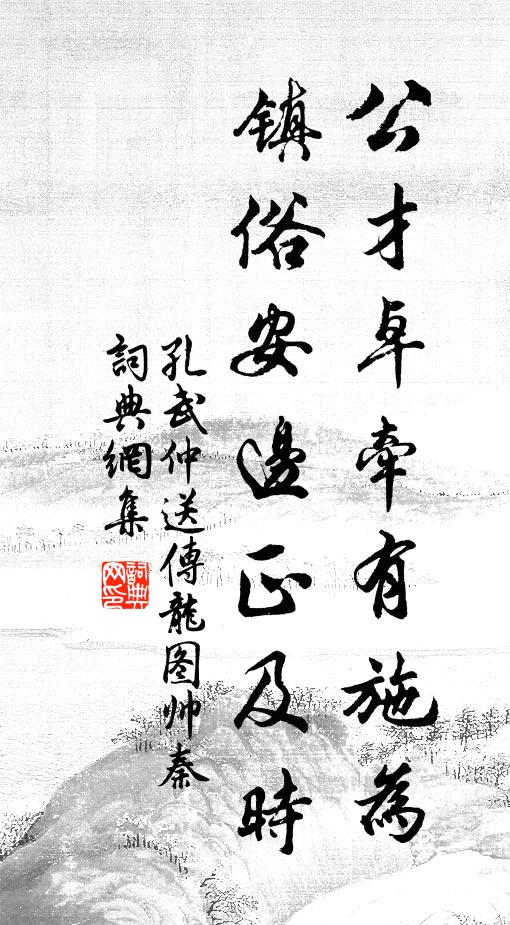 公才卓牽有施為
鎮俗安邊正及時
孔武仲送傅龍图帅秦
詞典網集
詞典
网印